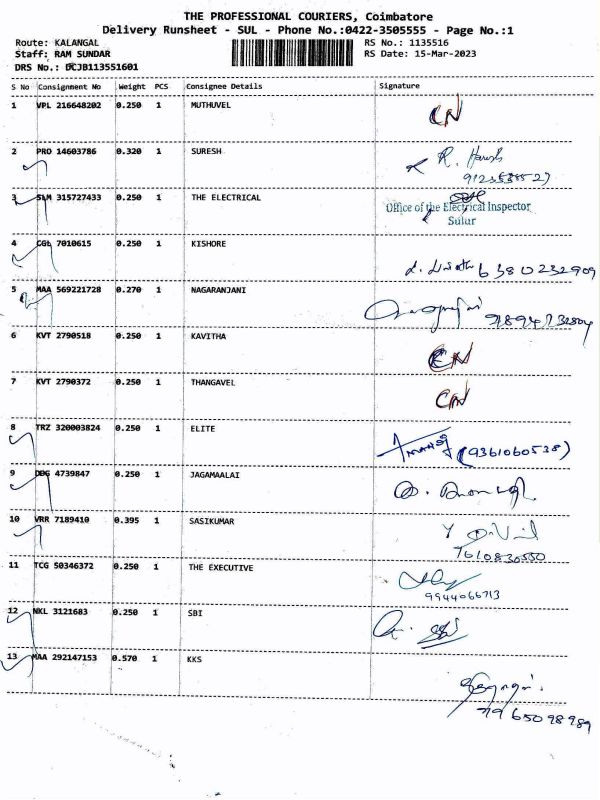 THE PROFESSIONAL COURIERS, Coimbatore
Delivery Runsheet - SUL - Phone No.:0422-3505555 - Page No.:1
Route: KALANGAL
RS No.: 1135516
Staff: RAM SUNDAR
RS Date: 15-Mar-2023
DRS No.: DCJB113551601
S No Consignment No Weight PCS Consignee Details Signature
1 VPL 216648202 0.250 1 MUTHUVEL CN
2 PRO 14603786 0.320 1 SURESH R. Harish
3 SLM 315727433 0.250 1 THE ELECTRICAL
Office of the Electrical Inspector
Sulur
4 CGL 7010615 0.250 1 KISHORE
6380232909
5 MAA 569221728 0.270 1 NAGARANJANI
6 KVT 2790518 0.250 1 KAVITHA CN
7 KVT 2790372 0.250 1 THANGAVEL CN
8 TRZ 320003824 0.250 1 ELITE
(9361060538)
9 DDG 4739847 0.250 1 JAGAMAALAI
10 VRR 7189410 0.395 1 SASIKUMAR
7610830550
11 TCG 50346372 0.250 1 THE EXECUTIVE
9944066713
12 NKL 3121683 0.250 1 SBI
13 MAA 292147153 0.570 1 KKS